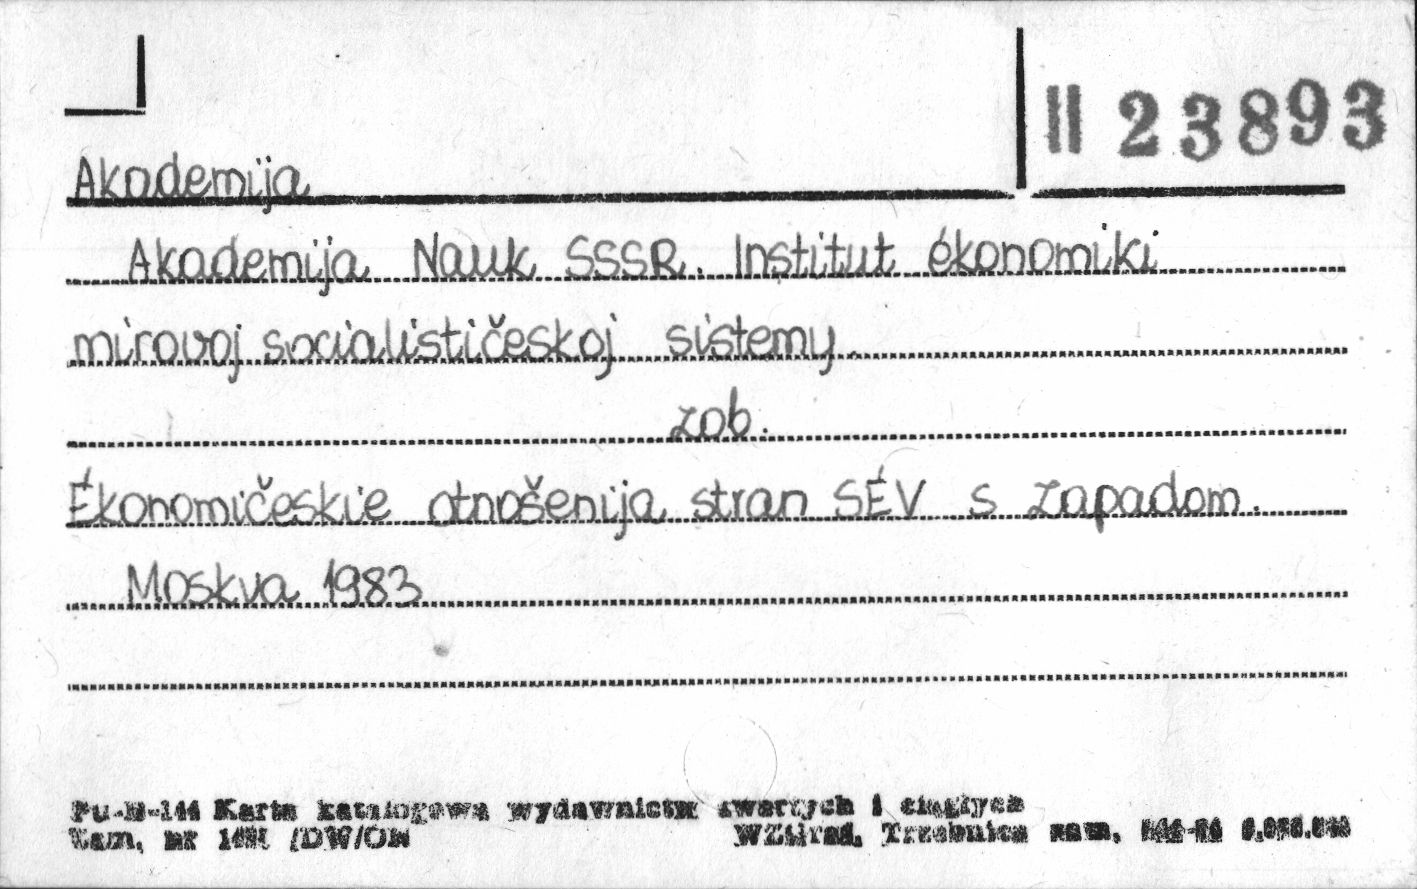 II 23893
Akademija
Akademija Nauk SSSR. Institut ékonomiki
mirovoj socialističeskoj sistemy.
zob.
Ékonomičeskie otnošenija stran SÉV s zapadom.
Moskva 1983
Pu-M-144 Karta katalogowa wydawnictw zwartych i ciągłych
Zam. nr /DW/ON WZGraf. Trzebnica zam.